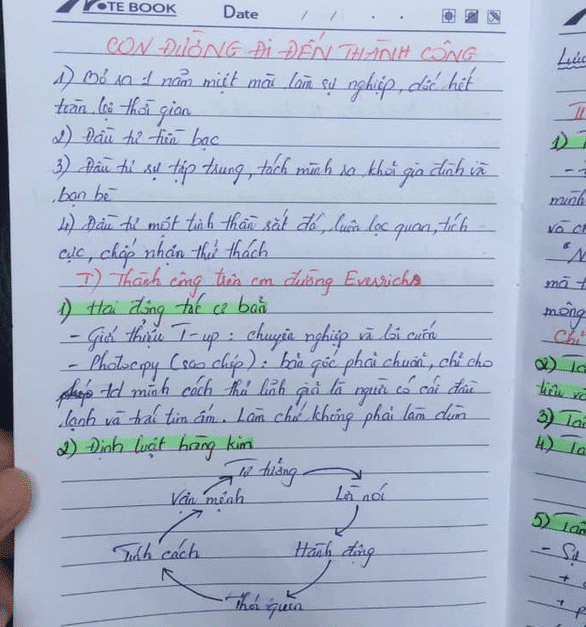 NOTE BOOK
Date / / . .
CON ĐƯỜNG ĐI ĐẾN THÀNH CÔNG
1) Bỏ ra :1 năm miệt mài làm sự nghiệp, dốc hết
toàn bộ thời gian
2) Đầu tư tiền bạc
3) Đầu tư sự tập trung, tách mình ra khỏi gia đình và
bạn bè
4) Đầu tư một tinh thần sắt đá, luôn lạc quan, tích
cực, chấp nhận thử thách
I) Thành công trên con đường Everrichs
1) Hai động tác cơ bản
- Giới thiệu T-up : chuyên nghiệp và lôi cuốn
- Photocopy (sao chép) : bản gốc phải chuẩn, chỉ cho
mình cách thủ lĩnh giả là người có cái đầu
lạnh và trái tim ấm. Làm chứ không phải làm
2) Định luật hàng kim
Tư tưởng
Vận mệnh Lời nói
Tính cách Hành động
Thói quen
Lúc
II
1)
mình
và
mã
mông
Chỉ
2) Ta
tiêu
3) Tai
4) Ta
5) Tâm
- Sự
+
+